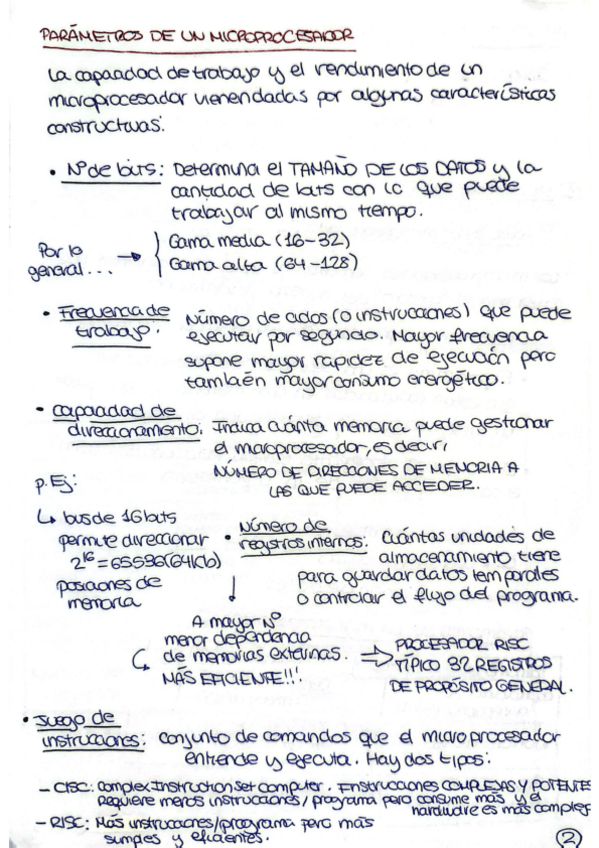 PARÁMETROS DE UN MICROPROCESADOR
La capacidad de trabajo y el rendimiento de un
microprocesador vienen dadas por algunas características
constructivas:
• Nº de bits: Determina el TAMAÑO DE LOS DATOS y la
cantidad de bits con lo que puede
trabajar al mismo tiempo.
Por lo
general... → Gama media (16-32)
Gama alta (64-128)
• Frecuencia de
trabajo. Número de ciclos (o instrucciones) que puede
ejecutar por segundo. Mayor frecuencia
supone mayor rapidez de ejecución pero
también mayor consumo energético.
• Capacidad de
direccionamiento: Indica cuánta memoria puede gestionar
el microprocesador, es decir,
NÚMERO DE DIRECCIONES DE MEMORIA A
LAS QUE PUEDE ACCEDER.
p.Ej:
↳ bus de 16 bits
permite direccionar
2^16 = 65536 (64Kb)
posiciones de
memoria
• Número de
registros internos: Cuántas unidades de
almacenamiento tiene
para guardar datos temporales
o controlar el flujo del programa.
A mayor Nº
menor dependencia
de memorias externas.
MÁS EFICIENTE!!!
⇒ PROCESADOR RISC
TÍPICO 32 REGISTROS
DE PROPÓSITO GENERAL.
• Juego de
instrucciones: conjunto de comandos que el microprocesador
entiende y ejecuta. Hay dos tipos:
- CISC: Complex Instruction Set Computer. Instrucciones COMPLEJAS Y POTENTES
Requiere menos instrucciones / programa pero consume más y el
hardware es más complejo
- RISC: Más instrucciones/programa pero más
simples y eficientes.
2